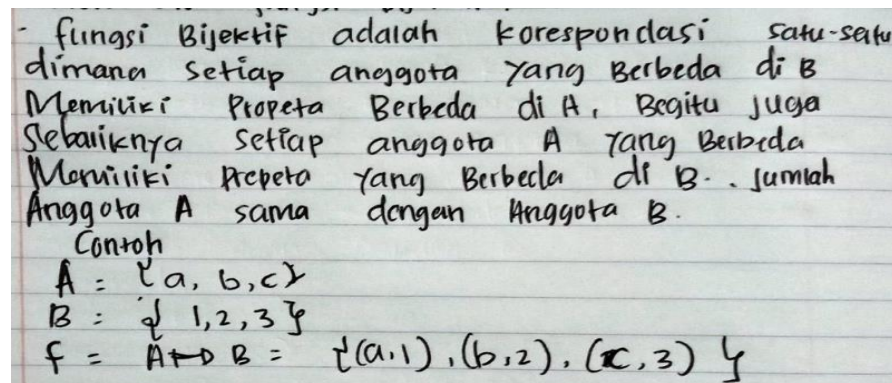 - fungsi Bijektif adalah korespondasi satu-satu
dimana setiap anggota yang Berbeda di B
Memiliki Propeta Berbeda di A, Begitu juga
Sebaliknya setiap anggota A yang Berbeda
Memiliki Prepeta yang Berbeda di B.. Jumlah
Anggota A sama dengan Anggota B.
Contoh
A = {a, b, c}
B = { 1, 2, 3 }
f = A ↦ B = {(a,1), (b,2), (c,3) }